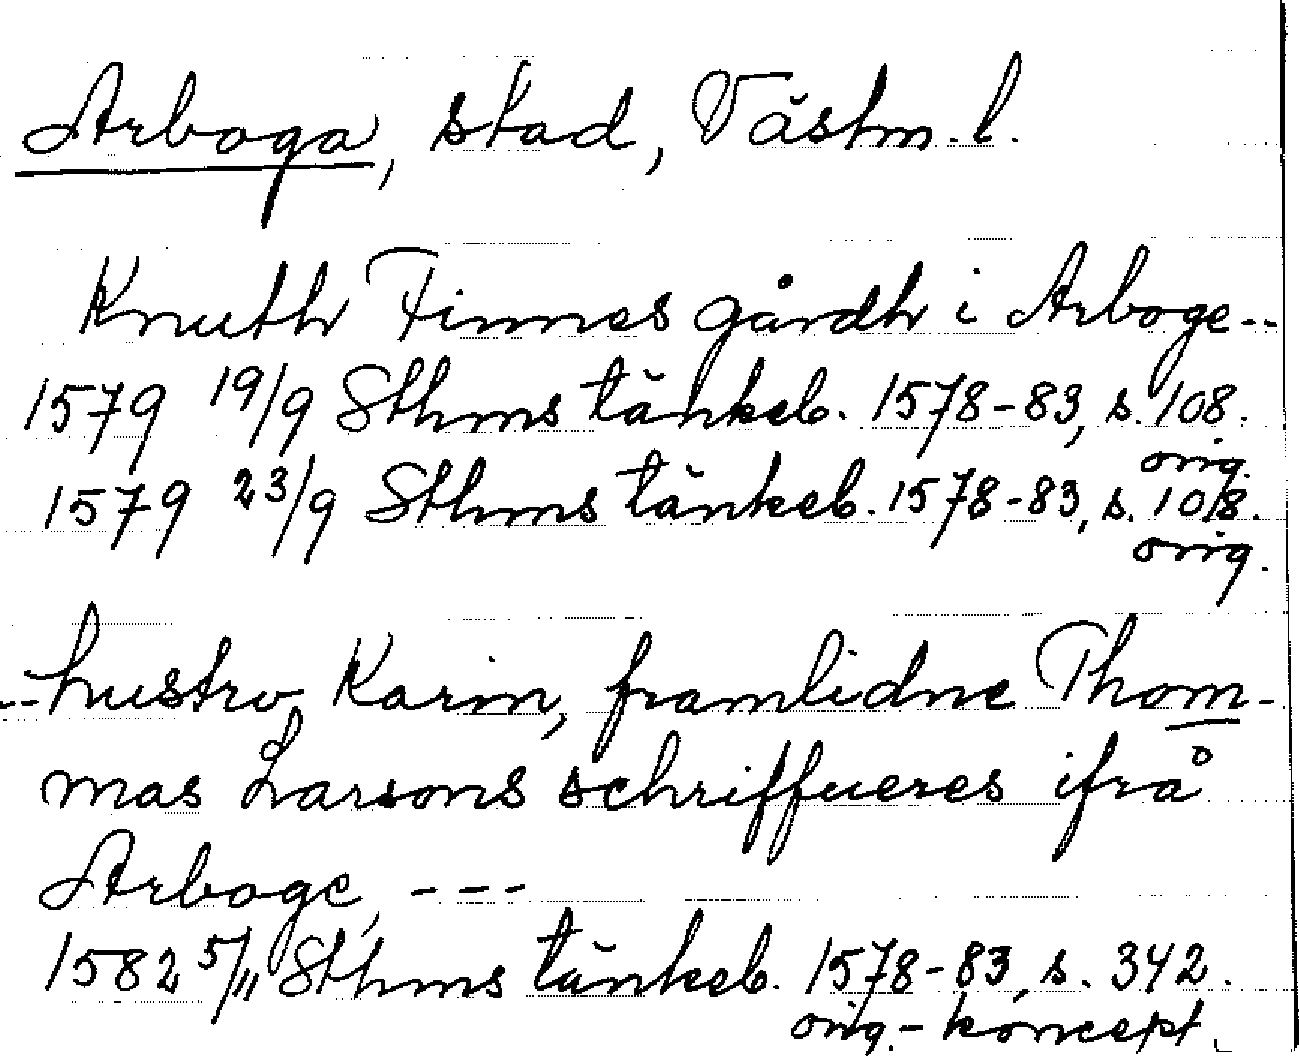 Arboga, stad, Västm. l.
Knuth Finnes gårdh i Arboge--
1579 19/9 Sthms tänkeb. 1578-83, s. 108.
orig.
1579 23/9 Sthms tänkeb. 1578-83, s. 108.
orig.
--hustro Karin, framlidne Thom-
mas Larsons schriffueres ifrå
Arboge, ---
1582 5/11 Sthms tänkeb. 1578-83, s. 342.
orig.-koncept.